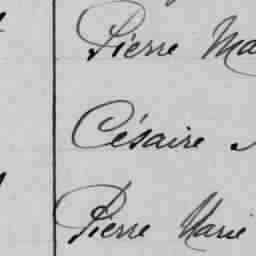 Pierre Ma
Césaire
Pierre Marie